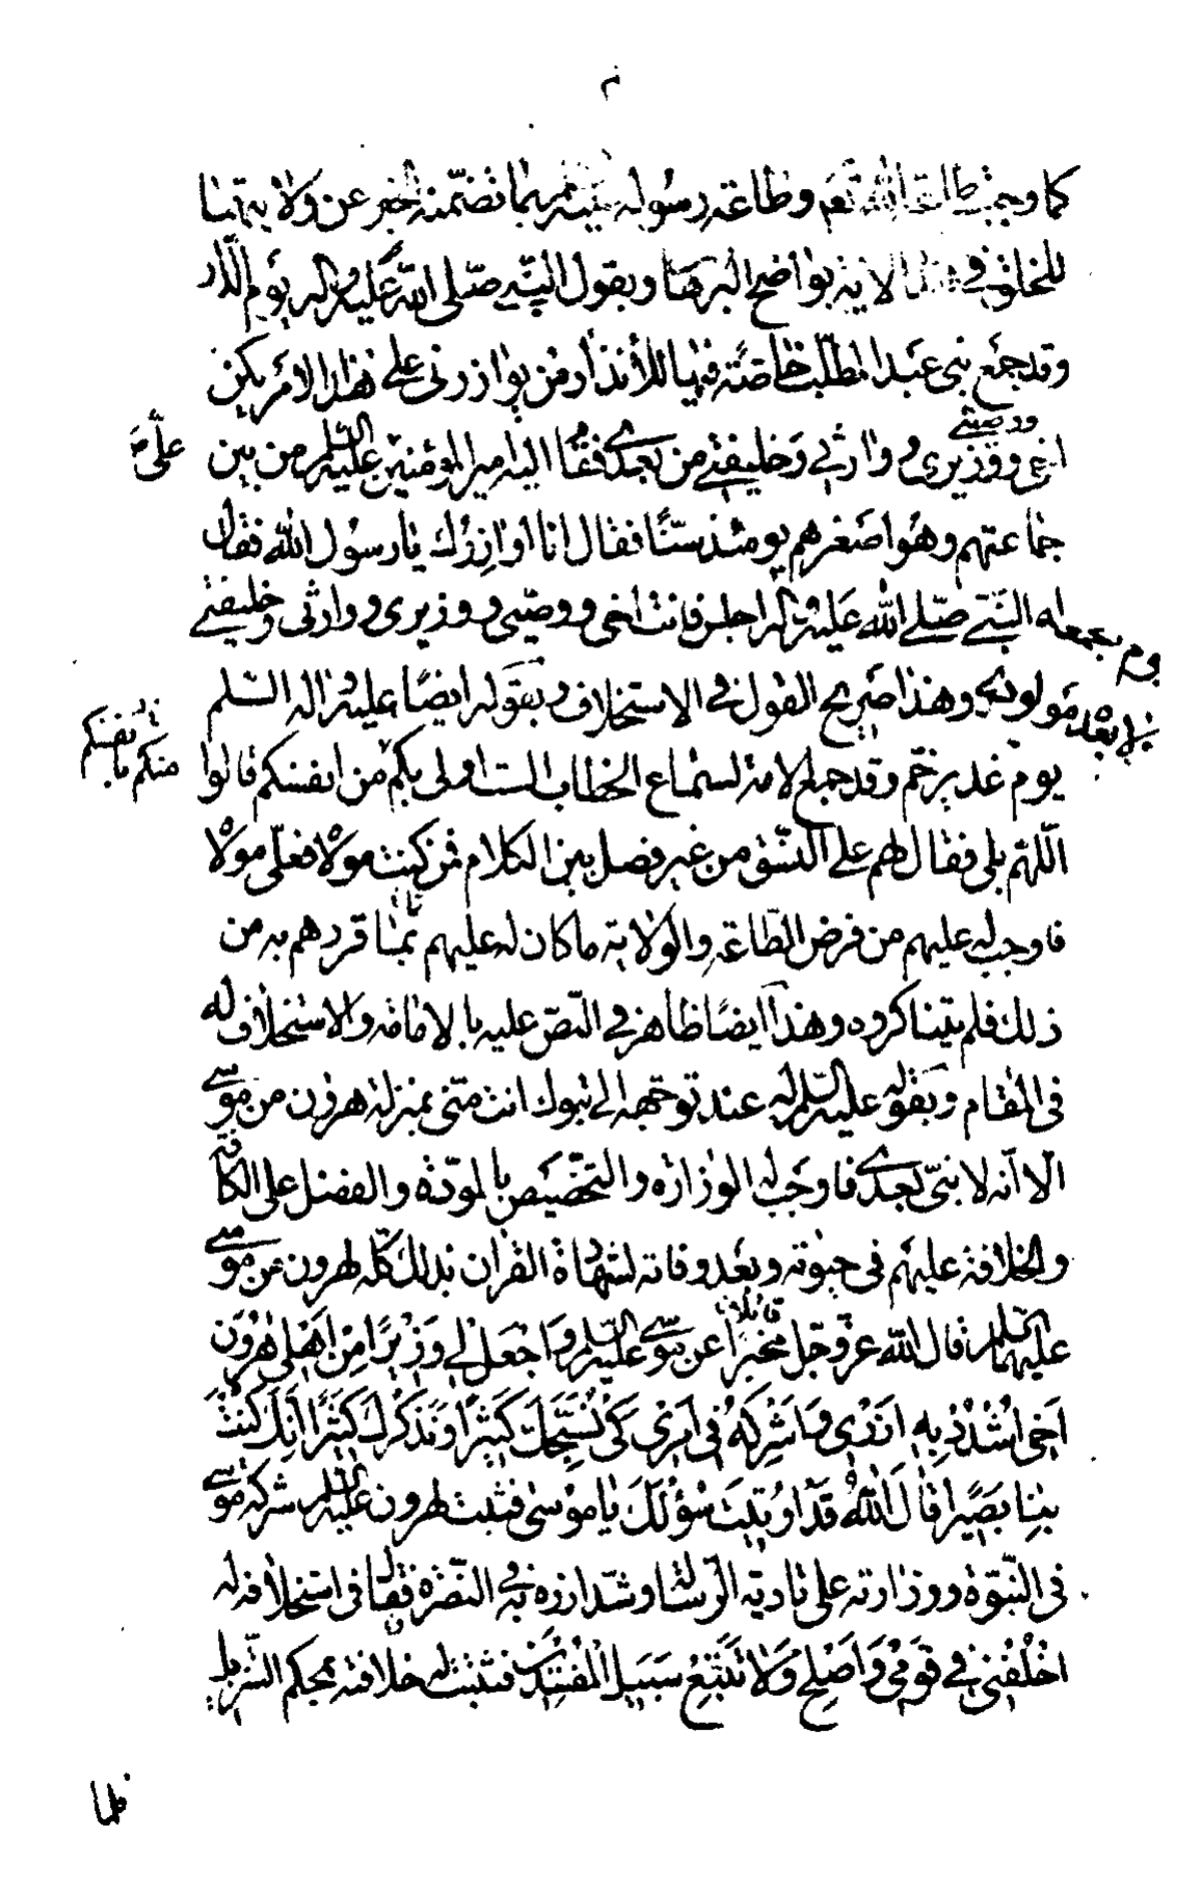 كما وجبت طاعة الله تعم وطاعة رسوله عليه بما تضمنه الخبر عن ولايتهما
للخلق في الاية بواضح البرهان وبقول النبي صلى الله عليه واله يوم الدار
وقد جمع بنى عبد المطلب خاصة فيها للأنذار من يوازرنى على هذا الامر يكن
ووصيى
اخى ووزيرى ووارثى وخليفتى من بعدى فقام اليه امير المؤمنين عليه السلم من بين
على
جماعتهم وهو اصغرهم يومئذ سنا فقال انا اوازرك يا رسول الله فقال
له النبي صلى الله عليه واله اجلس فانت اخى ووصيى ووزيرى ووارثى وخليفتى
من بعدى وهذا صريح القول في الاستخلاف وبقوله ايضا عليه واله السلم
منكم بانفسكم
يوم غدير خم وقد جمع الامة لسماع الخطاب الست اولى بكم من انفسكم قالوا
اللهم بلى فقال لهم على النسق من غير فصل بين الكلام فمن كنت مولاه فعلى مولاه
فاوجب له عليهم من فرض الطاعة والولاية ما كان له عليهم بما قررهم به من
ذلك فلم يتناكروه وهذا ايضا ظاهر في النص عليه بالامامة والاستخلاف له
فى المقام وبقوله عليه السلم له عند توجهه الى تبوك انت منى بمنزلة هرون من موسى
الا انه لا نبى بعدى فاوجب له الوزارة والتخصيص بالمودة والفضل على الكافة
والخلافة عليهم فى حيوته وبعد وفاته لشهادة القران بذلك كله لهرون من موسى
قائلا
عليهما السلم قال الله عز وجل مخبرا عن موسى عليه السلم واجعل لى وزيرا من اهلى هرون
اخى اشدد به ازرى واشركه فى امرى كى نسبحك كثيرا ونذكرك كثيرا انك كنت
بنا بصيرا قال الله قد اوتيت سؤلك يا موسى فثبت لهرون عليه السلم شركة موسى
فى النبوة ووزارته على تادية الرسالة وشد ازره به في النصرة فقال فى استخلافه له
اخلفنى في قومى واصلح ولا تتبع سبيل المفسدين فثبتت له خلافته بمحكم التنزيل
فلما